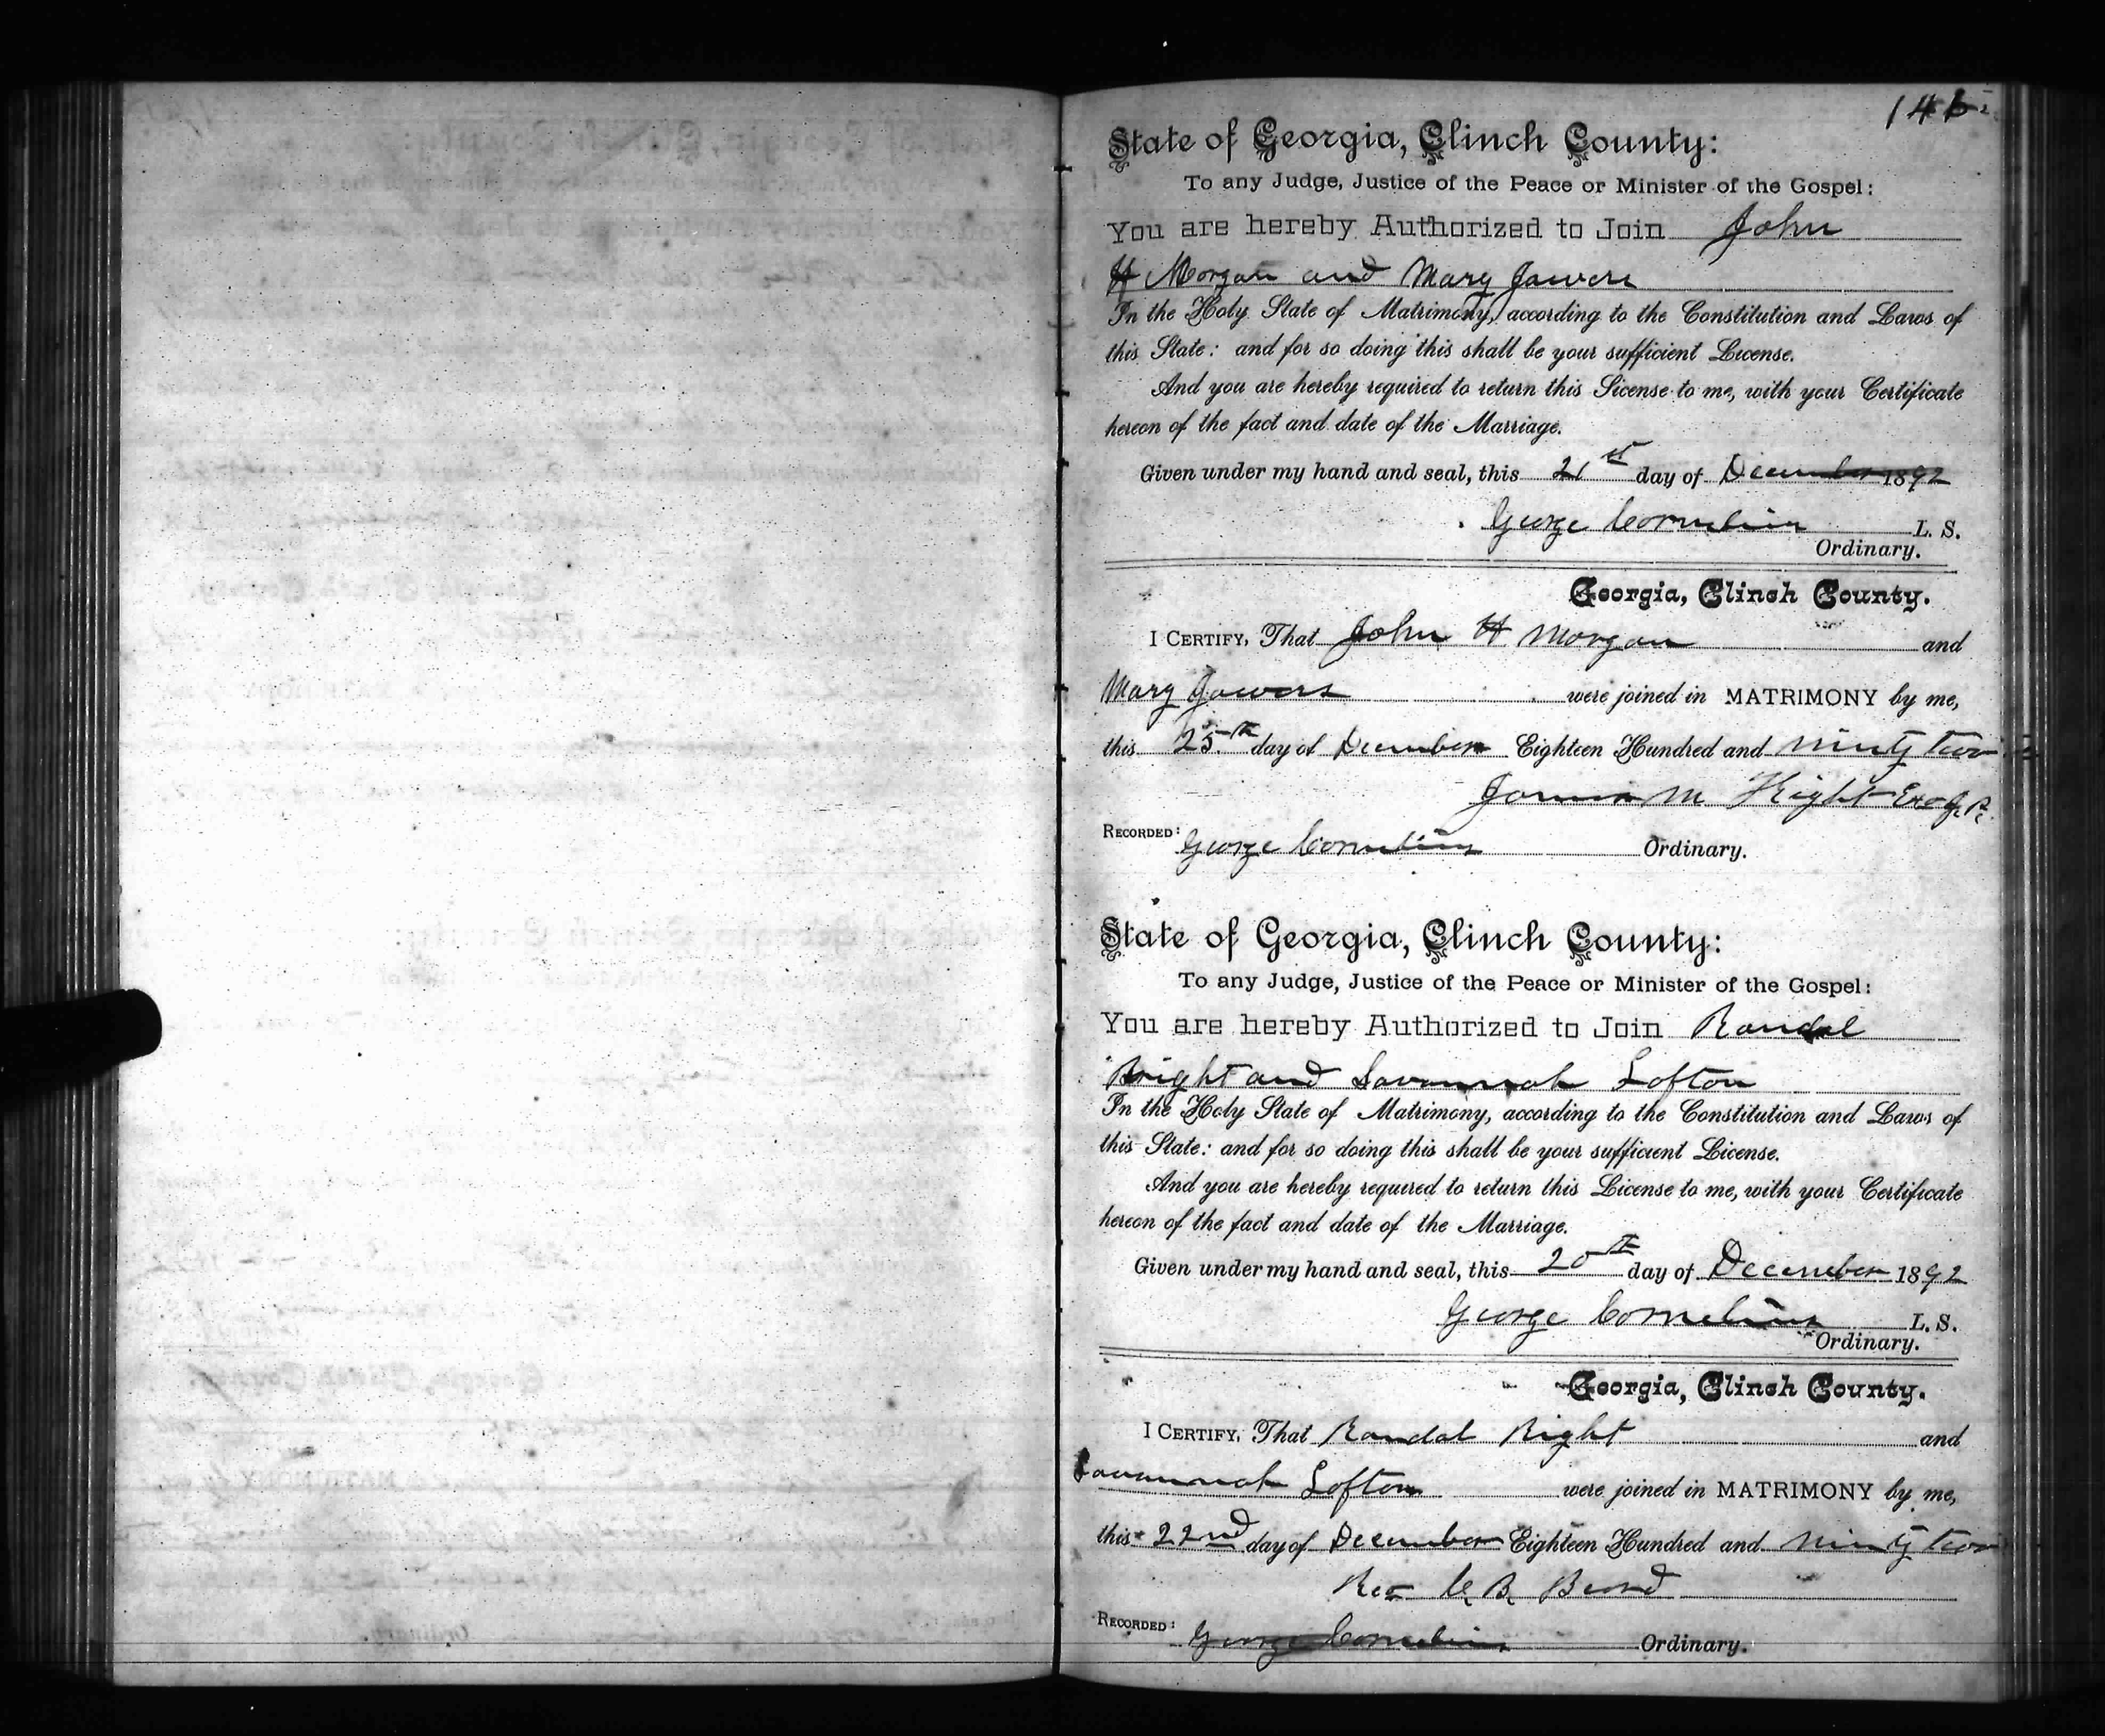 State of Georgia, Clinch County:
To any Judge, Justice of the Peace or Minister of the Gospel:
You are hereby Authorized to Join John
H Morgan and Mary Jowers
In the Holy State of Matrimony, according to the Constitution and Laws of
this State: and for so doing this shall be your sufficient License.
And you are hereby required to return this License to me, with your Certificate
hereon of the fact and date of the Marriage.
Given under my hand and seal, this 21st day of December 1892
George Cornelius L. S.
Ordinary.
Georgia, Clinch County.
I CERTIFY, That John H Morgan and
Mary Jowers were joined in MATRIMONY by me,
this 25th day of December Eighteen Hundred and ninty two
M Hight
RECORDED: George Cornelius Ordinary.
State of Georgia, Clinch County:
To any Judge, Justice of the Peace or Minister of the Gospel:
You are hereby Authorized to Join Randal
Bright and Savannah Lofton
In the Holy State of Matrimony, according to the Constitution and Laws of
this State: and for so doing this shall be your sufficient License.
And you are hereby required to return this License to me, with your Certificate
hereon of the fact and date of the Marriage.
Given under my hand and seal, this 20th day of December 1892
George Cornelius L. S.
Ordinary.
Georgia, Clinch County.
I CERTIFY, That Randal Right and
Savannah Lofton were joined in MATRIMONY by me,
this 22nd day of December Eighteen Hundred and ninty two
Rev C. B. Beard
RECORDED: George Cornelius Ordinary.